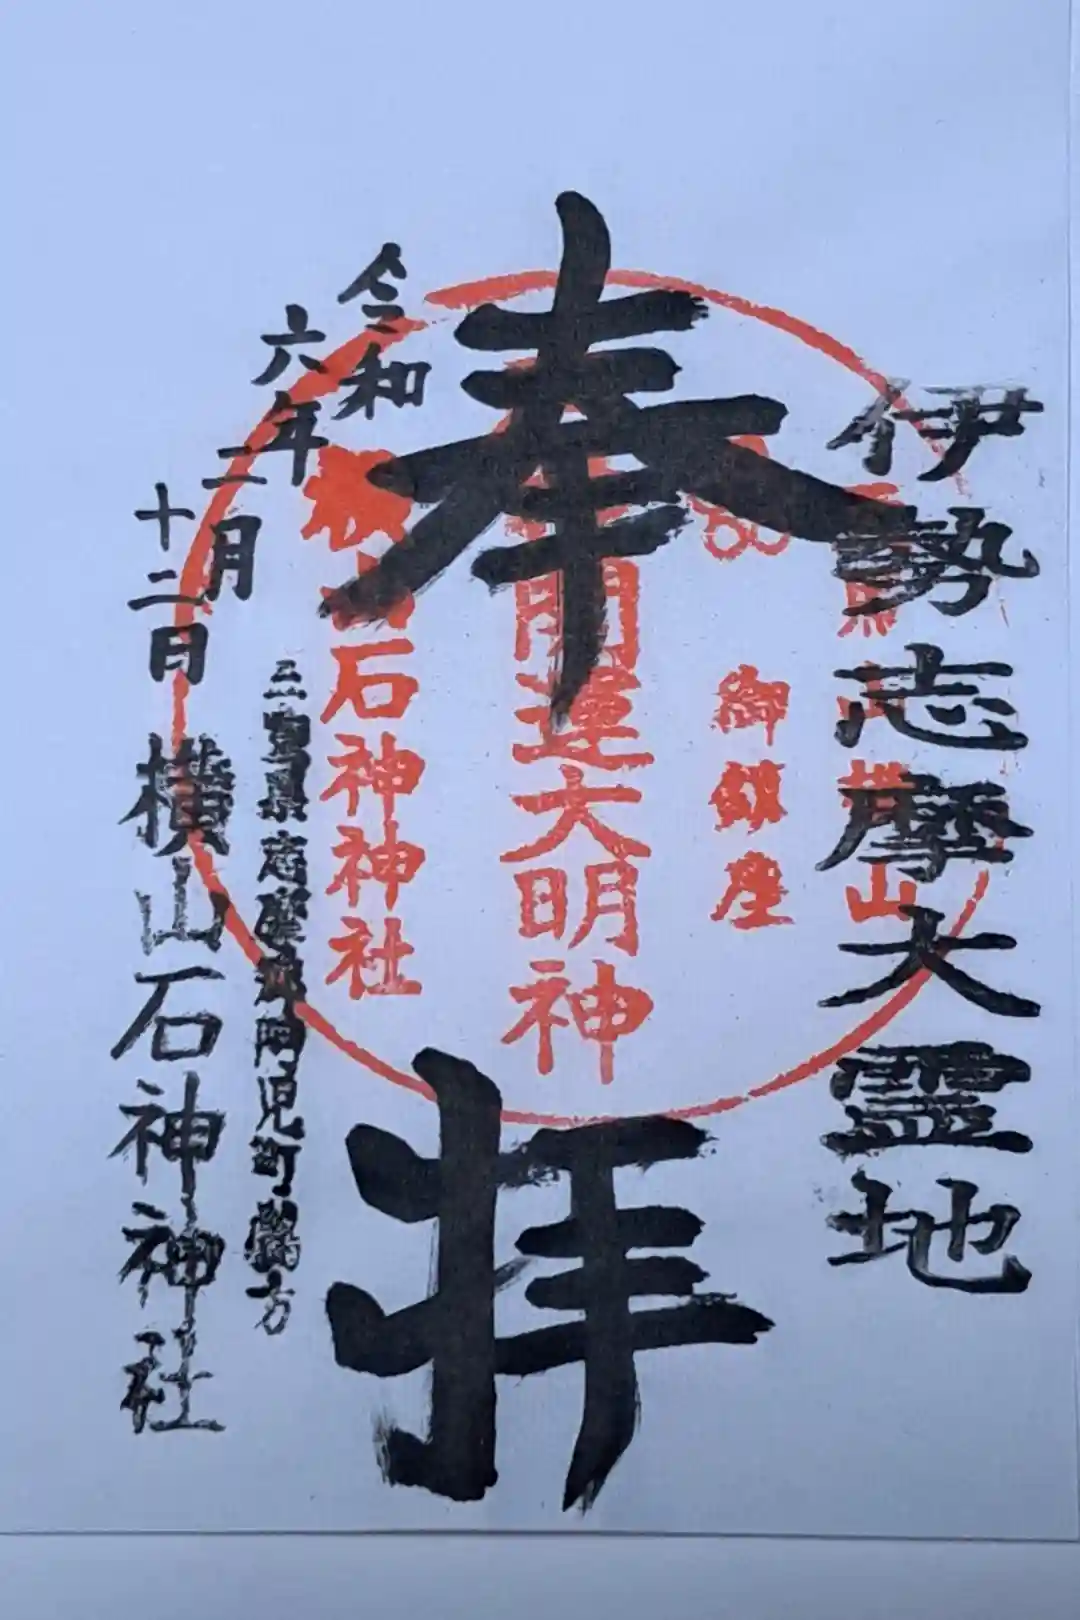 伊勢志摩大霊地
横山
奉拝
御鎮座
開運大明神
石神神社
令和
六年
二月
十二日
三重県志摩郡阿児町鵜方
横山石神神社